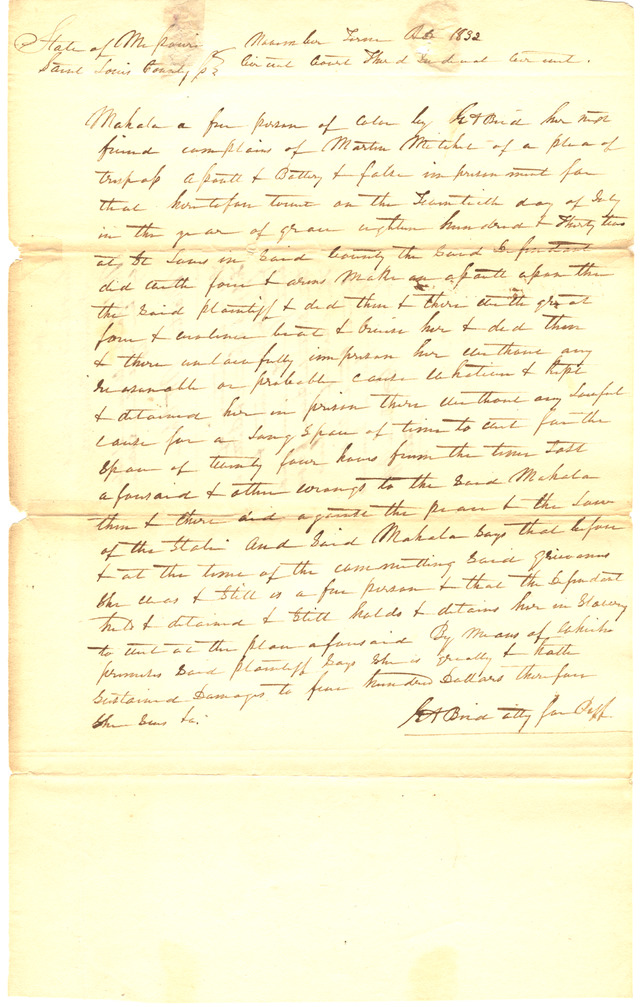 State of Missouri November Term AD 1832
Saint Louis County Sct Circuit Court Third Judicial Circuit.
Mahala a free person of Color by G A Bird her next
friend complains of Martin Mitchel of a plea of
trespass assault & Battery & false imprisonment for
that heretofore towit on the day of July
in the year of grace eighteen hundred & Thirty two
at St Louis in Said County the Said Defendant
did with force & arms Make an assault upon the
the Said Plaintiff & did then & there with great
force & violence beat & bruise her & did then
& there unlawfully imprison her without any
reasonable or probable cause whatever & kept
& detained her in prison there without any Lawful
cause for a Long Space of time to wit for the
Space of twenty four hours from the time Last
aforesaid & other wrongs to the Said Mahala
then & there did against the peace & the Law
of the State. And Said Mahala Says that before
& at the time of the committing Said grievances
She was & Still is a free person & that the Defendant
held & detained & Still holds & detains her in Slavery
to wit at the place aforesaid By Means of which
premises Said Plaintiff Says She is greatly & hath
Sustained Damages to five hundred Dollars therefore
She Sues &c.
G A Bird atty for Plff